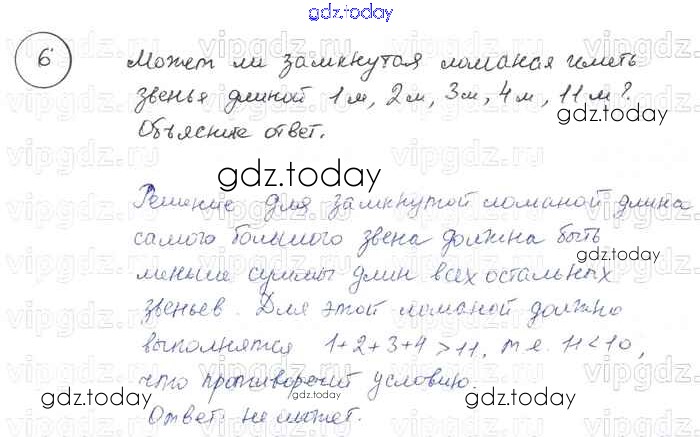 gdz.today
6 Может ли замкнутая ломаная иметь
звенья длиной 1 м, 2 м, 3 м, 4 м, 11 м?
gdz.today
Объясните ответ.
gdz.today
Решение Для замкнутой ломаной длина
самого большого звена должна быть
меньше суммы длин всех остальных
звеньев. Для этой ломаной должно
gdz.today
gdz.today
выполнятся 1+2+3+4>11, т.е. 11<10,
что противоречит условию.
gdz.today
gdz.today
Ответ: не может.